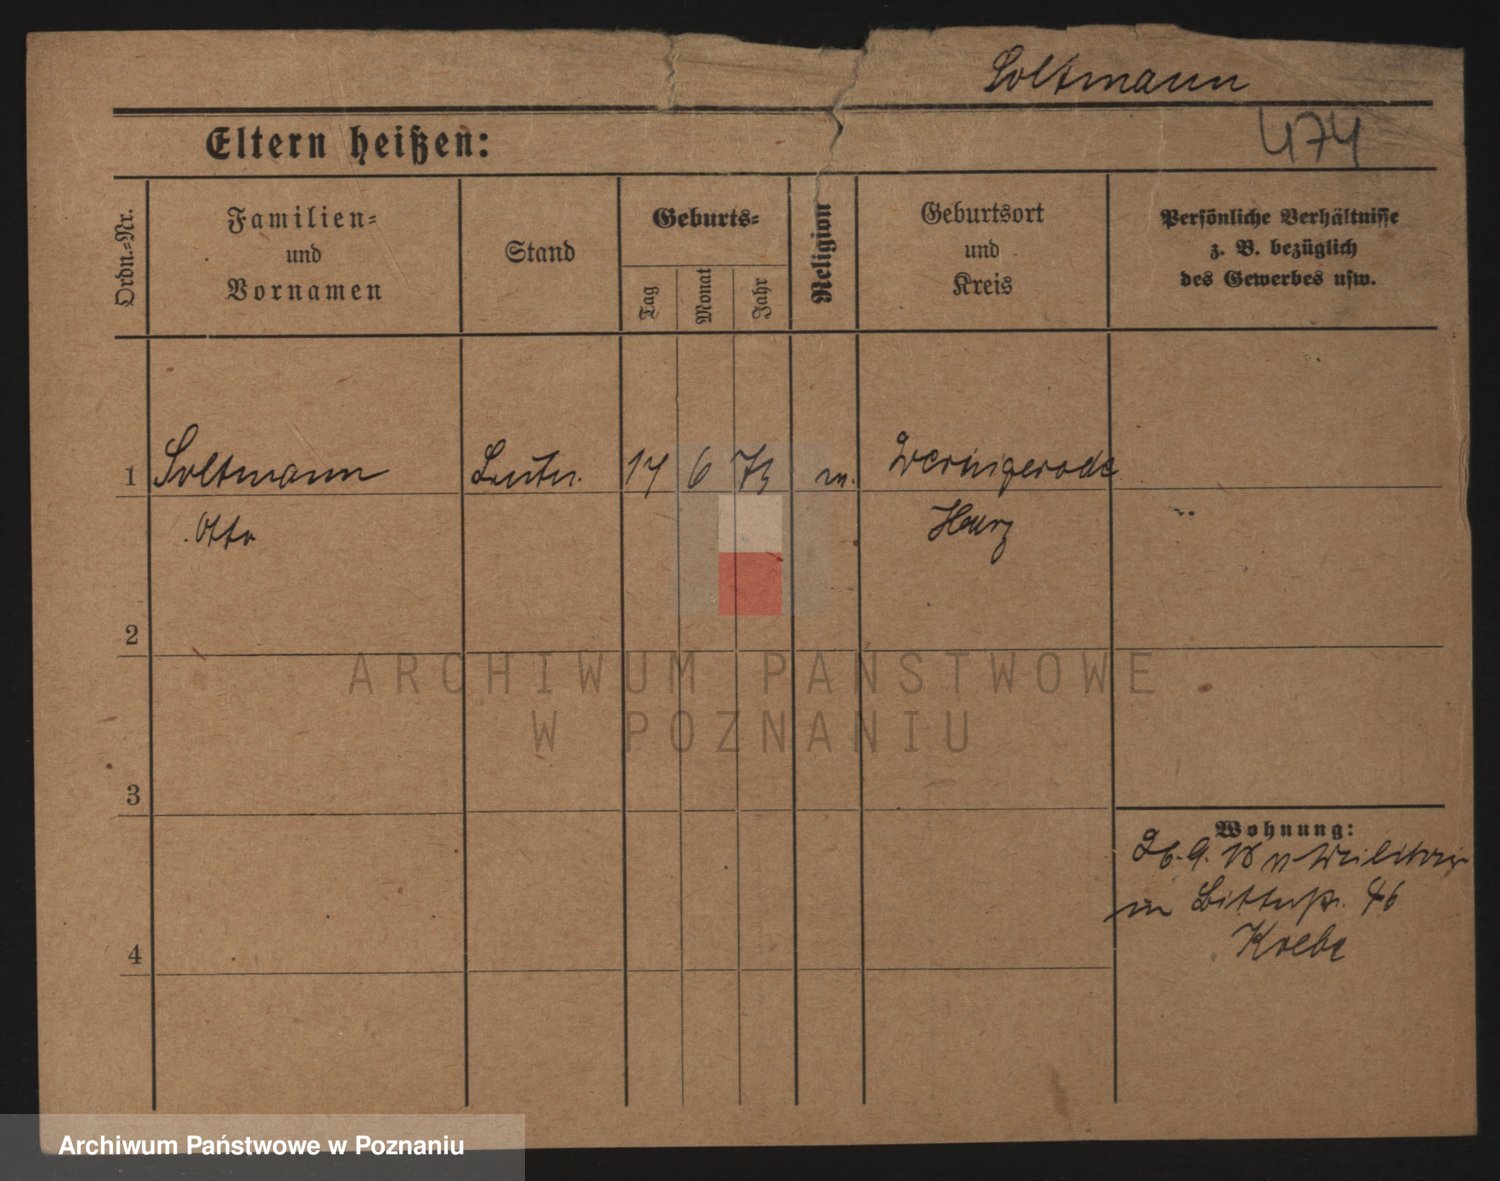 Soltmann
474
Eltern heißen:
Ordn.=Nr.
Familien=
und
Vornamen
Stand
Geburts=
Tag
Monat
Jahr
Religion
Geburtsort
und
Kreis
Persönliche Verhältnisse
z. B. bezüglich
des Gewerbes usw.
1 Soltmann 14 6 73 Wernigerode
Otto Harz
2
3
4
Wohnung:
46
Krebs
ARCHIWUM PAŃSTWOWE
W POZNANIU
Archiwum Państwowe w Poznaniu